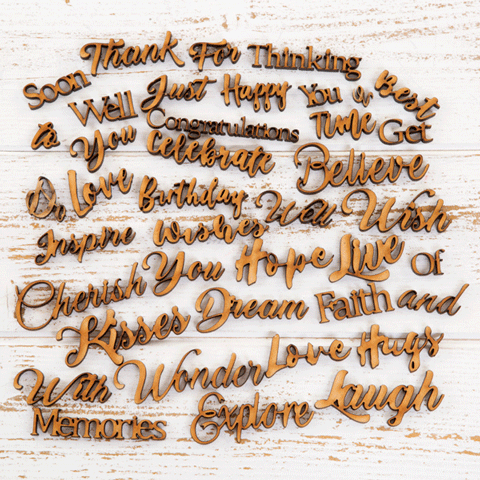 Thank For Thinking
Soon Just Happy You a Best
Well Congratulations Time Get
to You Celebrate Believe
In Love Birthday Well Wish
Inspire Wishes
You Hope Live Of
Cherish Dream Faith and
Kisses Love Hugs
With Wonder Laugh
Memories Explore